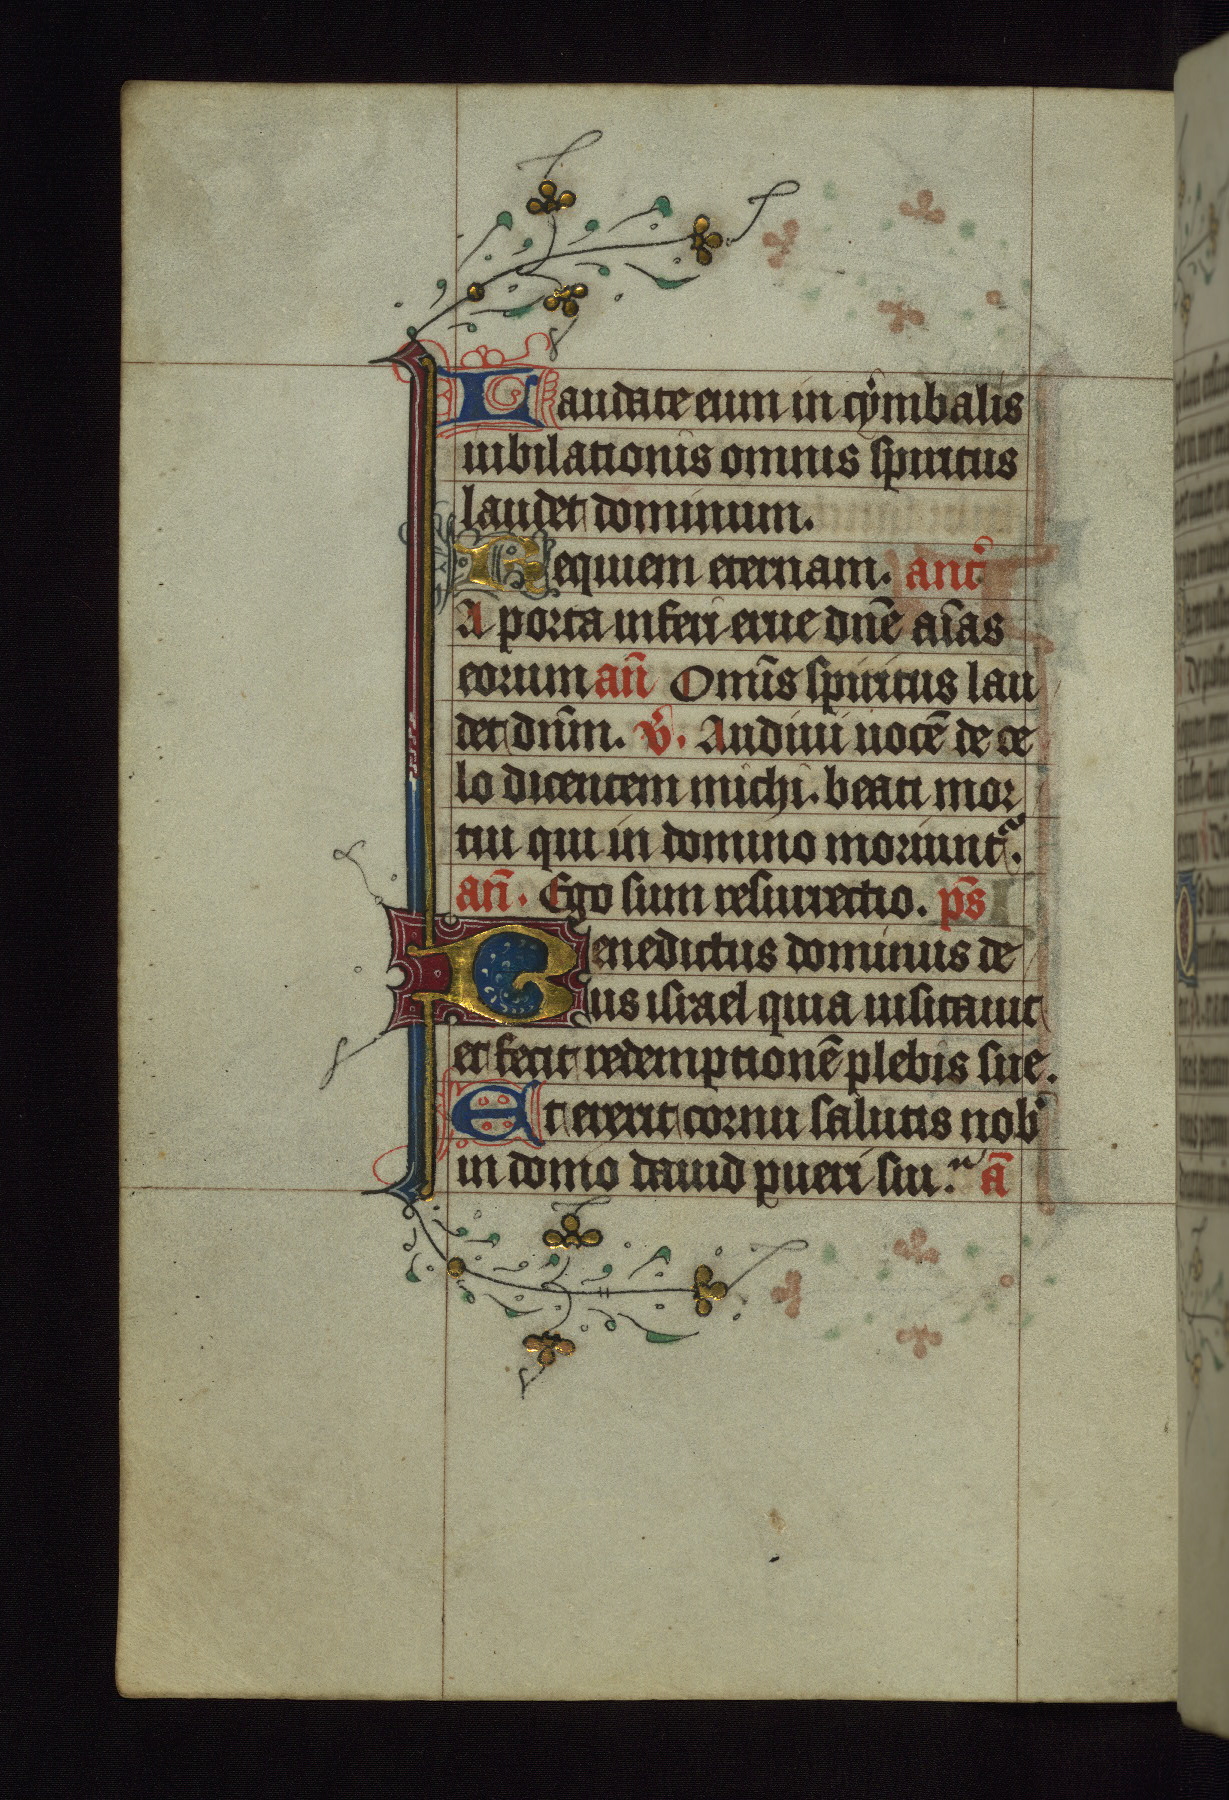 Laudate eum in cymbalis
iubilationis omnis spiritus
laudet dominum.
Requiem eternam. ant̾
A porta inferi erue dn̄e aīas
eorum an̄ Omīs spiritus lau
det dn̄m. v̄. Audiui uocē de ce
lo dicentem michi. beati mor
tui qui in domino moriunt᷑.
an̄. Ego sum resurrectio. ps̄
Benedictus dominus de
us israel quia uisitauit
et fecit redemptionē plebis sue.
Et erexit cornu salutis nob᷒
in domo dauid pueri sui. ā